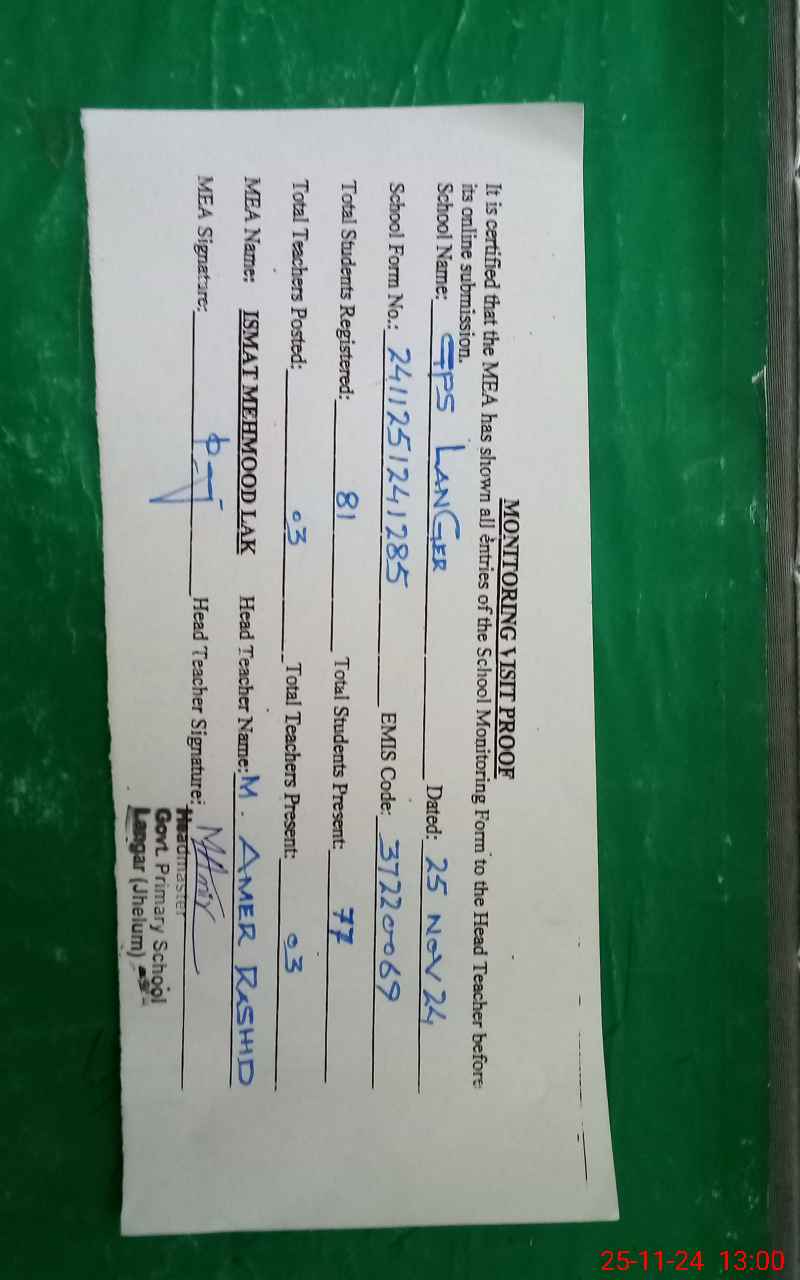 MONITORING VISIT PROOF
It is certified that the MEA has shown all entries of the School Monitoring Form to the Head Teacher before
its online submission.
School Name: GPS LANGER Dated: 25 NOV 24
School Form No.: 241125124 1285 EMIS Code: 37220069
Total Students Registered: 81 Total Students Present: 77
Total Teachers Posted: 03 Total Teachers Present: 03
MEA Name: ISMAT MEHMOOD LAK Head Teacher Name: M. AMER RASHID
MEA Signature: Head Teacher Signature: MAmir
Headmaster
Govt. Primary School
Langar (Jhelum)
25-11-24 13:00